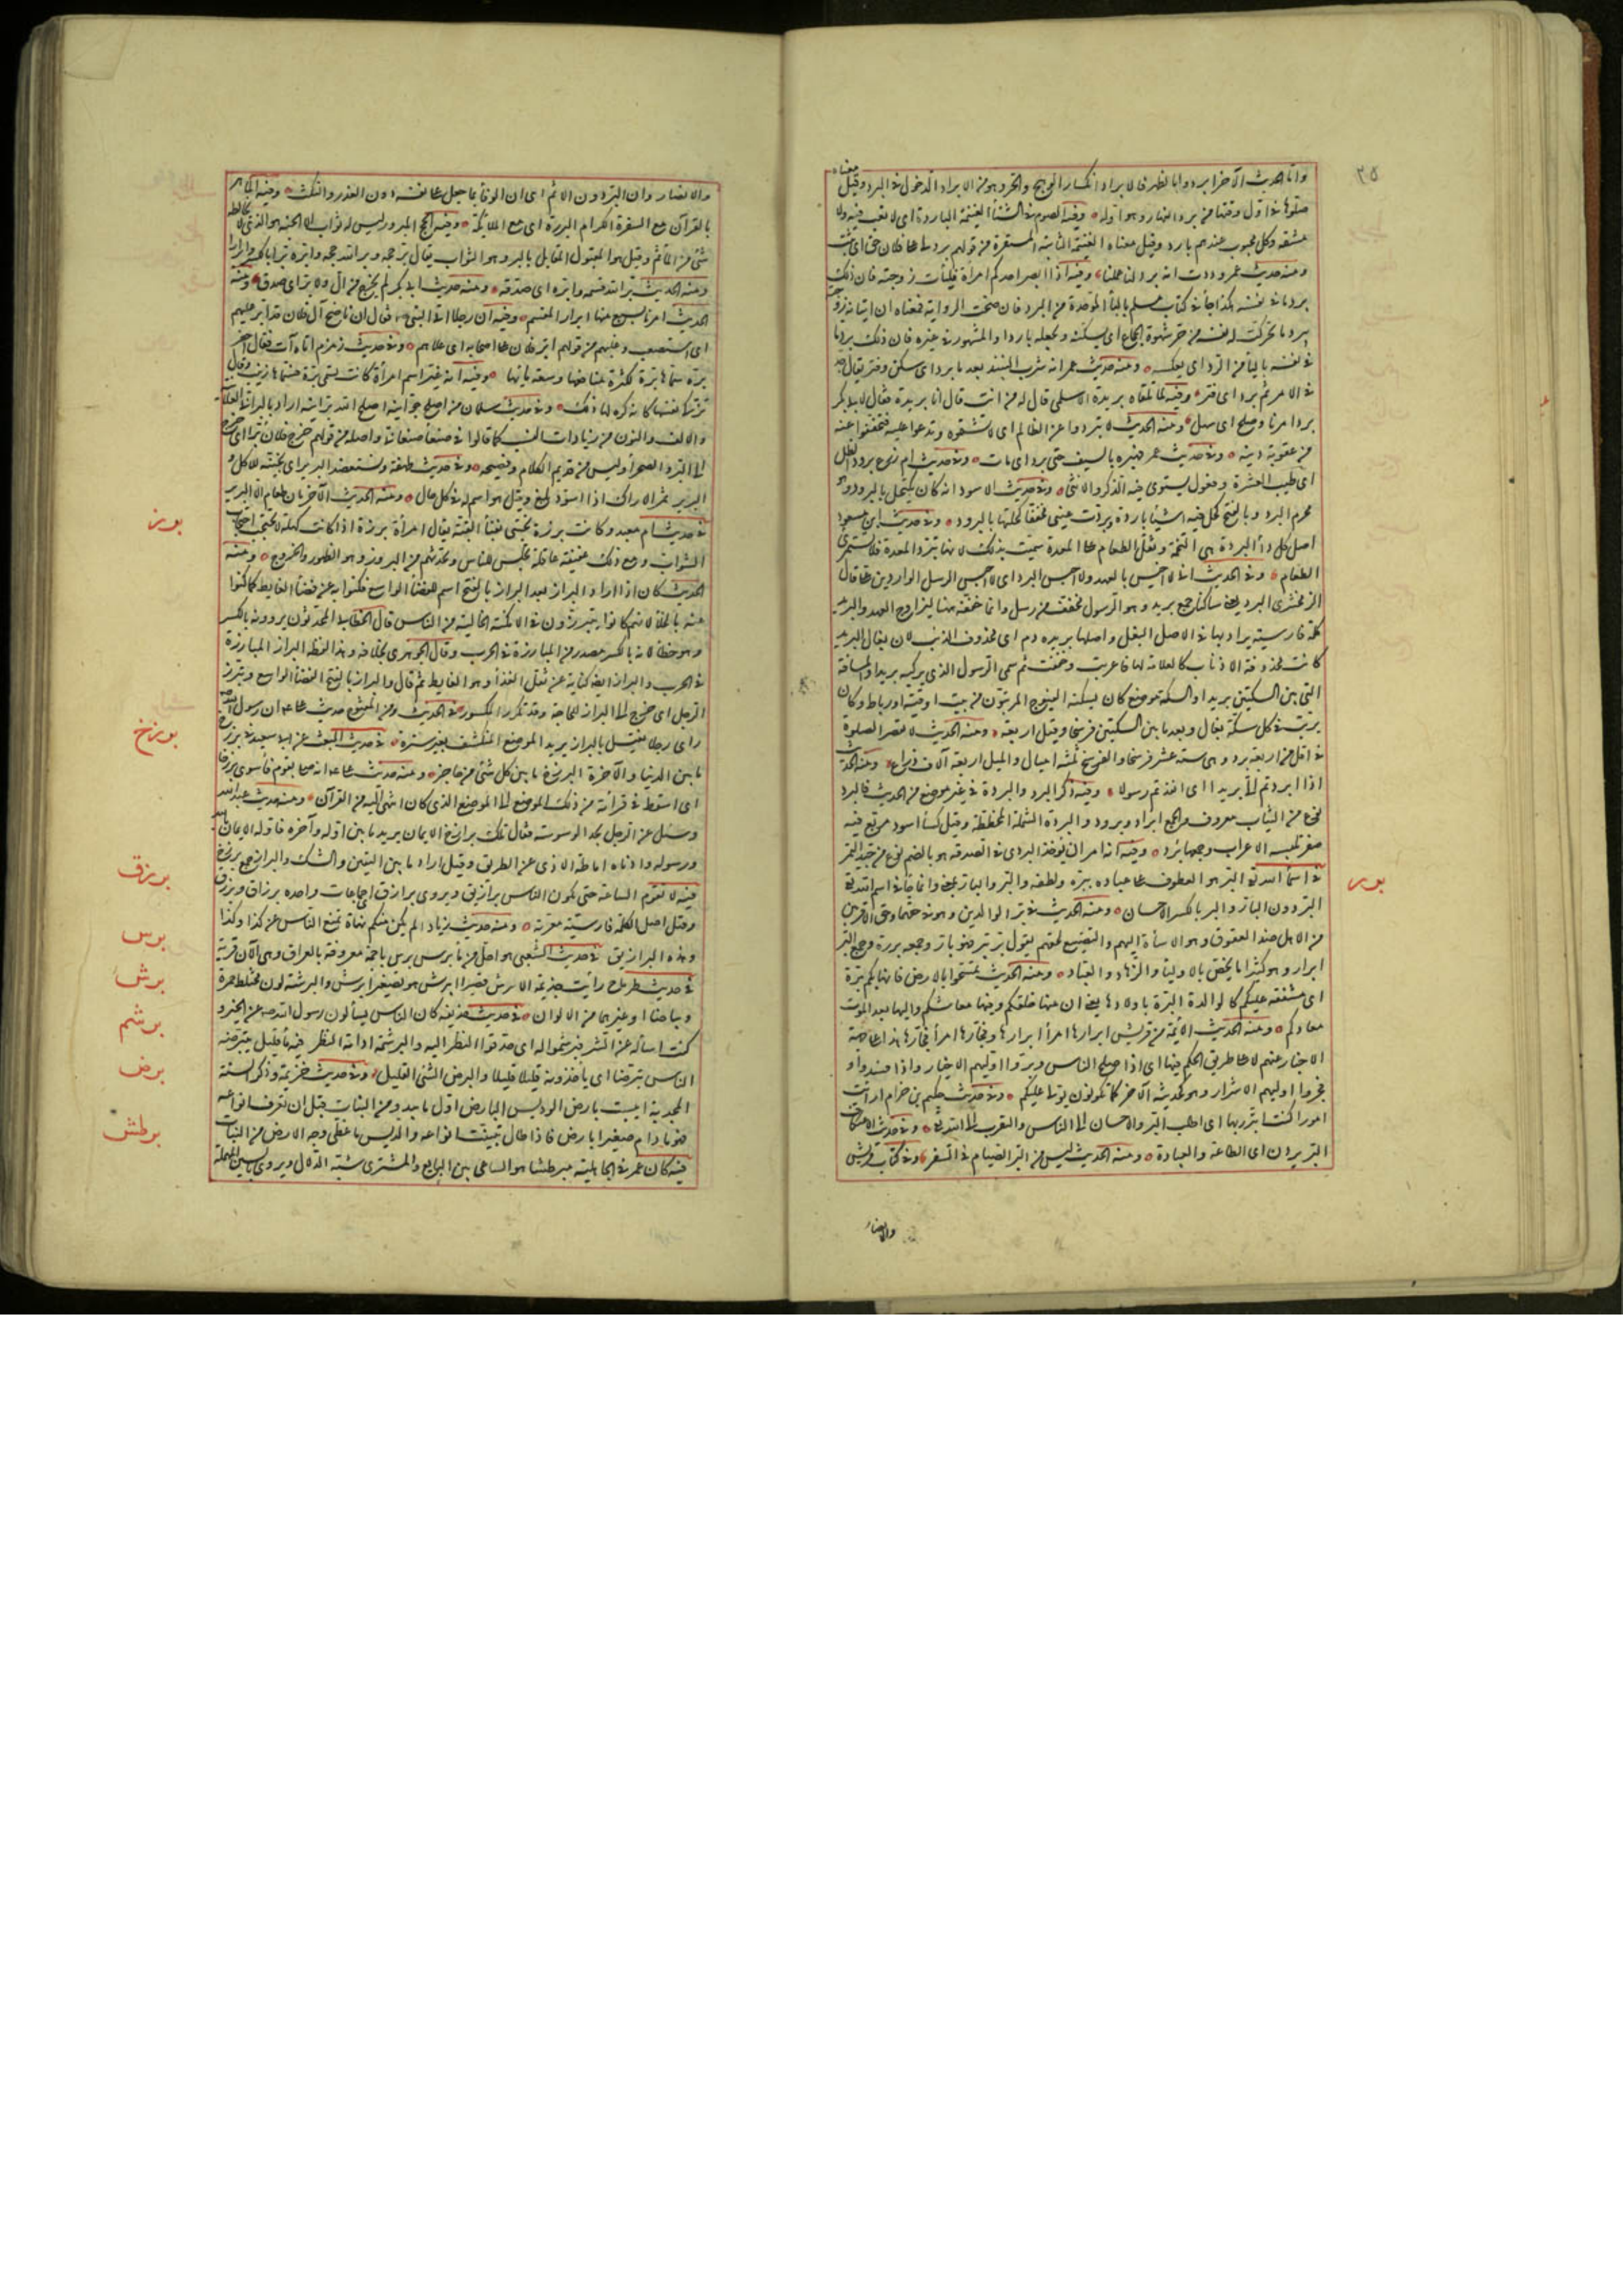 ٣٥
واما الحديث الآخر ابردوا بالظهر فالابراد انكسار الوهج والحر وهو من الابراد الدخول في البرد وقيل معناه
صلوها في اول وقتها من برد النهار وهو اوله وفيه الصوم في الشتأ الغنيمة الباردة اى لا تعب فيه ولا
مشقة وكل محبوب عندهم بارد وقيل معناه الغنيمة الثابتة المستقرة من قولهم برد لى على فلان حق اى ثبت
ومنه حديث عمر وددت انه برد لنا عملنا وفيه اذا ابصر احدكم امراة فليأت زوجته فان ذلك
برد ما في نفسه هكذا جأ في كتاب مسلم بالبأ الموحدة من البرد فان صحت الرواية فمعناه ان اتيانه زوجته
يبرد ما تحركت له نفسه من حر شهوة الجماع اى يسكنه ويجعله باردا والمشهور في غيره فان ذلك يرد ما
في نفسه باليأ من الرد اى يعكسه ومنه حديث عمر انه شرب النبيذ بعد ما برد اى سكن وفتر يقال جد
في الامر ثم برد اى فتر وفيه لما تلقاه بريدة الاسلمى قال له من انت قال انا بريدة فقال لابى بكر
برد امرنا وصلح اى سهل ومنه الحديث لا تبردوا عن الظالم اى لا تشتموه وتدعوا عليه فتخففوا عنه
من عقوبة ذنبه وفي حديث عمر فهبره بالسيف حتى برد اى مات وفي حديث ام زرع برود الظل
اى طيب العشرة وفعول يستوى فيه الذكر والانثى وفي حديث الاسود انه كان يكتحل بالبرود وهو
محرم البرود بالفتح كحل فيه اشيأ باردة وبردت عينى مخففا كحلتها بالبرود وفي حديث ابن مسعود
اصل كل دأ البردة هى التخمة وثقل الطعام على المعدة سميت بذلك لانها تبرد المعدة فلا تستمرئ
الطعام وفي الحديث انى لا اخيس بالعهد ولا احبس البرد اى لا احبس الرسل الواردين على قال
الزمخشرى البرد يعنى ساكنا جمع بريد وهو الرسول مخفف من رسل وانما خففه هنا ليزاوج العهد والبريد
كلمة فارسية يراد بها في الاصل البغل واصلها بريده دم اى محذوف الذنب لان بغال البريد
كانت محذوفة الاذناب كالعلامة لها فاعربت وخففت ثم سمى الرسول الذى يركبه بريدا والمسافة
التى بين السكتين بريدا والسكة موضع كان يسكنه الفيوج المرتبون من بيت او قبة او رباط وكان
يرتب في كل سكة بغال وبعد ما بين السكتين فرسخان وقيل اربعة ومنه الحديث لا تقصر الصلوة
في اقل من اربعة برد وهى ستة عشر فرسخا والفرسخ ثلثة اميال والميل اربعة آلاف ذراع ومنه الحديث
اذا ابردتم الى بريدا اى انفذتم رسولا وفيه ذكر البرد والبردة في غير موضع من الحديث فالبرد
نوع من الثياب معروف والجمع ابراد وبرود والبردة الشملة المخططة وقيل كسأ اسود مربع فيه
صغر تلبسه الاعراب وجمعها برد وفيه انه امر ان يؤخذ البردى في الصدقة هو بالضم نوع من جيد التمر
برر
في اسمأ الله تعالى البر هو العطوف على عباده ببره ولطفه والبر والبار بمعنى وانما جأ في اسم الله تعالى
البر دون البار والبر بالكسر الاحسان ومنه الحديث في بر الوالدين وهو في حقهما وحق الاقربين
من الاهل ضد العقوق وهو الاسأة اليهم والتضييع لحقهم يقول بر يبر فهو بار وجمعه بررة وجمع البر
ابرار وهو كثيرا ما يخص بالاوليأ والزهاد والعباد ومنه الحديث تمسحوا بالارض فانها بكم برة
اى مشفقة عليكم كالوالدة البرة باولادها يعنى ان منها خلقكم وفيها معاشكم واليها بعد الموت
معادكم ومنه الحديث الأئمة من قريش ابرارها امرأ ابرارها وفجارها امرأ فجارها هذا على جهة
الاخبار عنهم لا على طريق الحكم فيها اى اذا صلح الناس وبروا وليهم الاخيار واذا فسدوا و
فجروا وليهم الاشرار وهو كحديثه الآخر كما تكونون يولى عليكم وفي حديث حكيم بن حزام ارأيت
امورا كنت ابررها اى اطلب البر والاحسان الى الناس والتقرب الى الله تعالى وفي حديث الاعتكاف
البر يردن اى الطاعة والعبادة ومنه الحديث ليس من البر الصيام في السفر وفي كتاب قريش
والانصار
والانصار وان البر دون الاثم اى ان الوفأ بما جعل على نفسه دون الغدر والنكث ومنه الماهر
بالقرآن مع السفرة الكرام البررة اى مع الملايكة وفيه الحج المبرور ليس له ثواب الا الجنة هو الذى لا يخالطه
شئ من المآثم وقيل هو المقبول المقابل بالبر وهو الثواب يقال بر حجه وبر الله حجه وابره برا بالكسر وابرارا
ومنه الحديث بر الله قسمه وابره اى صدقه ومنه حديث ابى بكر لم يخرج من ال ولا بر اى صدق ومنه
الحديث امرنا بسبع منها ابرار المقسم وفيه ان رجلا اتى النبى فقال ان ناضح آل فلان قد ابر عليهم
اى استصعب وغلبهم من قولهم ابر فلان على اصحابه اى علاهم وفي حديث زمزم اتاه آت فقال احفر
برة سماها برة لكثرة منافعها وسعة مائها وفيه انه غير اسم امرأة كانت تسمى برة فسماها زينب وقال
تزكى نفسها كانه كره لها ذلك وفي حديث سلمان من اصلح جوانيه اصلح الله برانيه اراد بالبرانى العلانية
والالف والنون من زيادات النسب كما قالوا في صنعأ صنعانى واصله من قولهم خرج فلان برا اى خرج
الى البر والصحرأ وليس من قديم الكلام وفصيحه وفي حديث طهفة ونستعضد البرير اى نجنيه للاكل و
البرير ثمر الاراك اذا اسود وبلغ وقيل هو اسم له في كل حال ومنه الحديث الآخر ما لنا طعام الا البرير
برز
في حديث ام معبد وكانت برزة تحتبى بفنأ القبة يقال امرأة برزة اذا كانت كهلة لا تحتجب احتجاب
الشواب ومع ذلك عفيفة عاقلة تجلس للناس وتحدثهم من البروز وهو الظهور والخروج ومنه
الحديث كان اذا اراد البراز ابعد البراز بالفتح اسم للفضأ الواسع فكنوا به عن قضأ الغايط كما كنوا
عنه بالخلأ لانهم كانوا يتبرزون في الامكنة الخالية من الناس قال الخطابى المحدثون يروونه بالكسر
وهو خطأ لانه بالكسر مصدر من المبارزة في الحرب وقال الجوهرى بخلافه وهذا لفظه البراز المبارزة
في الحرب والبراز ايضا كناية عن ثفل الغذأ وهو الغايط ثم قال والبراز بالفتح الفضأ الواسع وتبرز
الرجل اى خرج الى البراز للحاجة وقد تكرر المكسور في الحديث ومن المفتوح حديث يعلى ان رسول الله صم
رأى رجلا يغتسل بالبراز يريد الموضع المنكشف بغير سترة
برزخ
في حديث المبعث عن ابى سعيد في برزخ
ما بين الدنيا والآخرة البرزخ ما بين كل شئ من حاجز ومنه حديث على انه صلى بقوم فأسوى برزخا
اى اسقط في قرأته من ذلك الموضع الى الموضع الذى كان انتهى اليه من القرآن ومنه حديث عبد الله
وسئل عن الرجل يجد الوسوسة فقال تلك برازخ الايمان يريد ما بين اوله وآخره فاوله الايمان بالله
ورسوله وادناه اماطة الاذى عن الطريق وقيل اراد ما بين اليقين والشك والبرازخ جمع برزخ
برزق
فيه لا تقوم الساعة حتى يكون الناس برازيق ويروى برازق اى جماعات واحده برزاق وبرزق
وقيل اصل الكلمة فارسية معربة ومنه حديث زياد الم يكن منكم نهاة تمنع الناس عن كذا وكذا
وهذه البرازيق
برس
في حديث الشعبى هو احل من مأ برس برس اجمة معروفة بالعراق وهى الآن قرية
برش
في حديث طرماح رأيت جذيمة الابرش قصيرا ابيرش هو تصغير ابرش والبرشة لون مختلط حمرة
وبياضا او غيرهما من الالوان
برشم
في حديث حذيفة كان الناس يسألون رسول الله صم عن الخير و
كنت اسأله عن الشر فبرشموا له اى حدقوا النظر اليه والبرشمة ادامة النظر
برض
فيه مأ قليل يتبرضه
الناس تبرضا اى ياخذونه قليلا قليلا والبرض الشئ القليل وفي حديث خزيمة وذكر السنة
المجدبة ايبست بارض الوديس البارض اول ما يبدو من النبات قبل ان تعرف انواعه
فهو ما دام صغيرا بارض فاذا طال تبينت انواعه والوديس ما غطى وجه الارض من النبات
برطش
فيه كان عمر في الجاهلية مبرطشا هو الساعى بين البايع والمشترى شبه الدلال ويروى بالسين المهملة